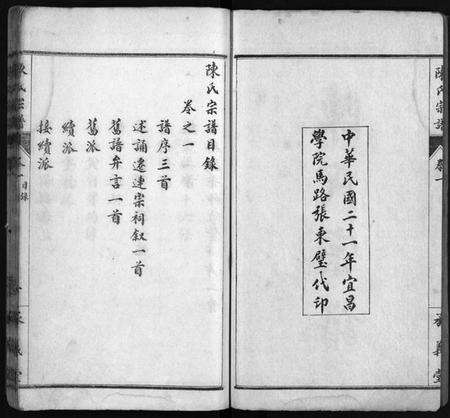 陳氏宗譜
卷一
承義堂
中華民國二十一年宜昌
學院馬路張東璧代印
陳氏宗譜目錄
卷之一
譜序三首
述誦遷連宗祠叙一首
舊譜弁言一首
舊派
續派
接續派
氏宗譜
卷一
目錄